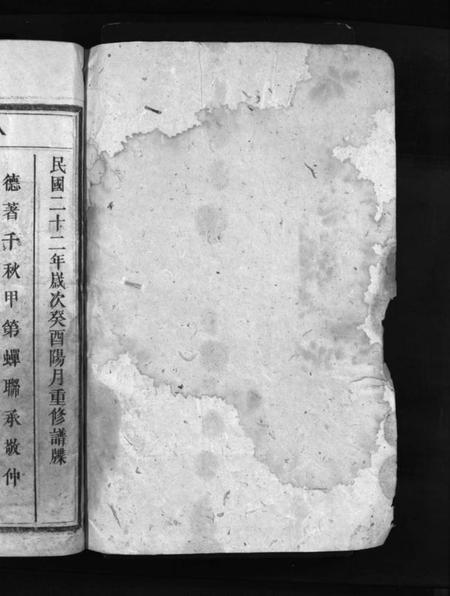 民國二十二年歲次癸酉陽月重修譜牒
德著千秋甲第蟬聯承敬仲